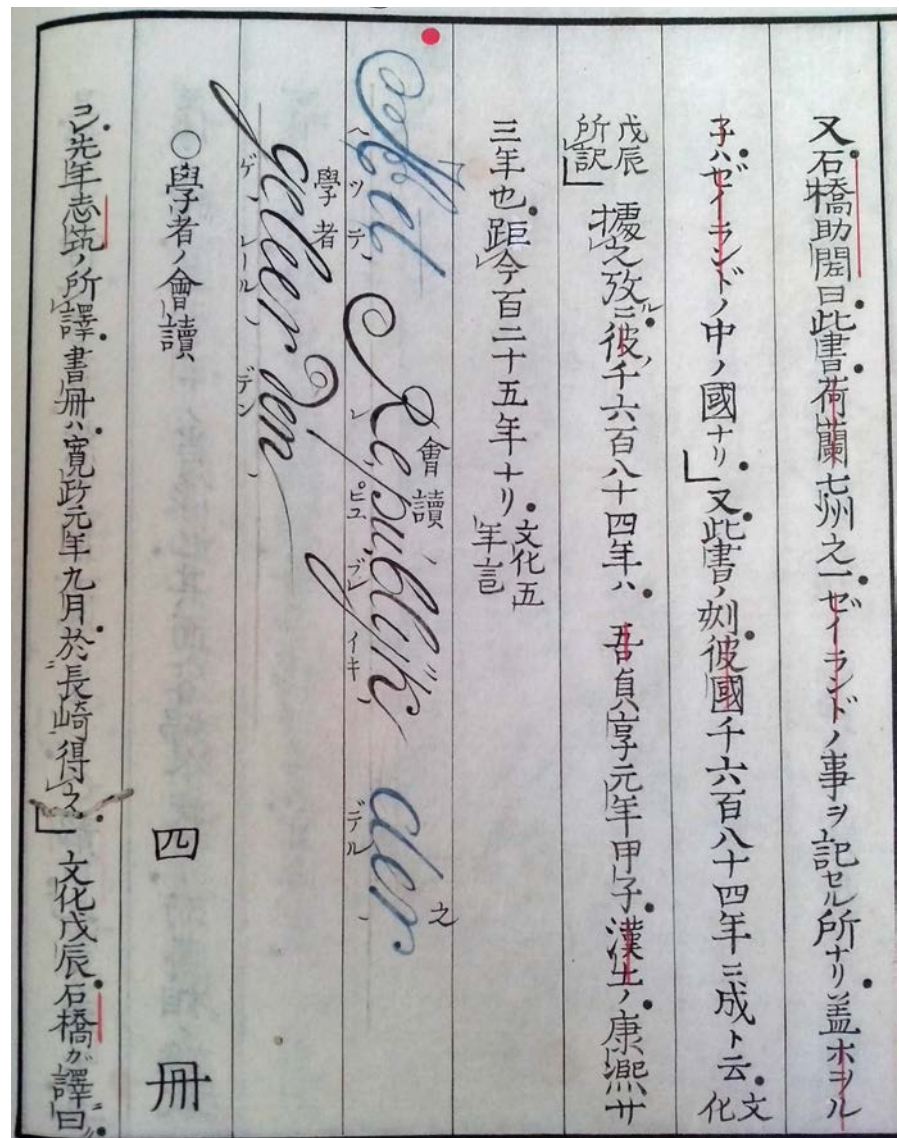 又石橋助左曰此書荷蘭七州之一ゼイランドノ事ヲ記セル所ナリ盖ホヲル
子ハゼイランドノ中ノ國ナリ」又此書ノ刻彼國千六百八十四年ニ成ト云文化
戊辰所訳」據之攷ルニ彼ノ千六百八十四年ハ吾貞享元年甲子漢土ノ康熙廿
三年也距今百二十五年ナリ文化五年言
Het Republijk der
ヘツテ、レ、ピュブレイキ、デル、
會讀
之
geleerden
ゲ、レール、デン、
學者
○學者ノ會讀 四冊
コレ先年志筑ノ所譯書冊ハ寛政元年九月於長崎得之」文化戊辰石橋ガ譯曰